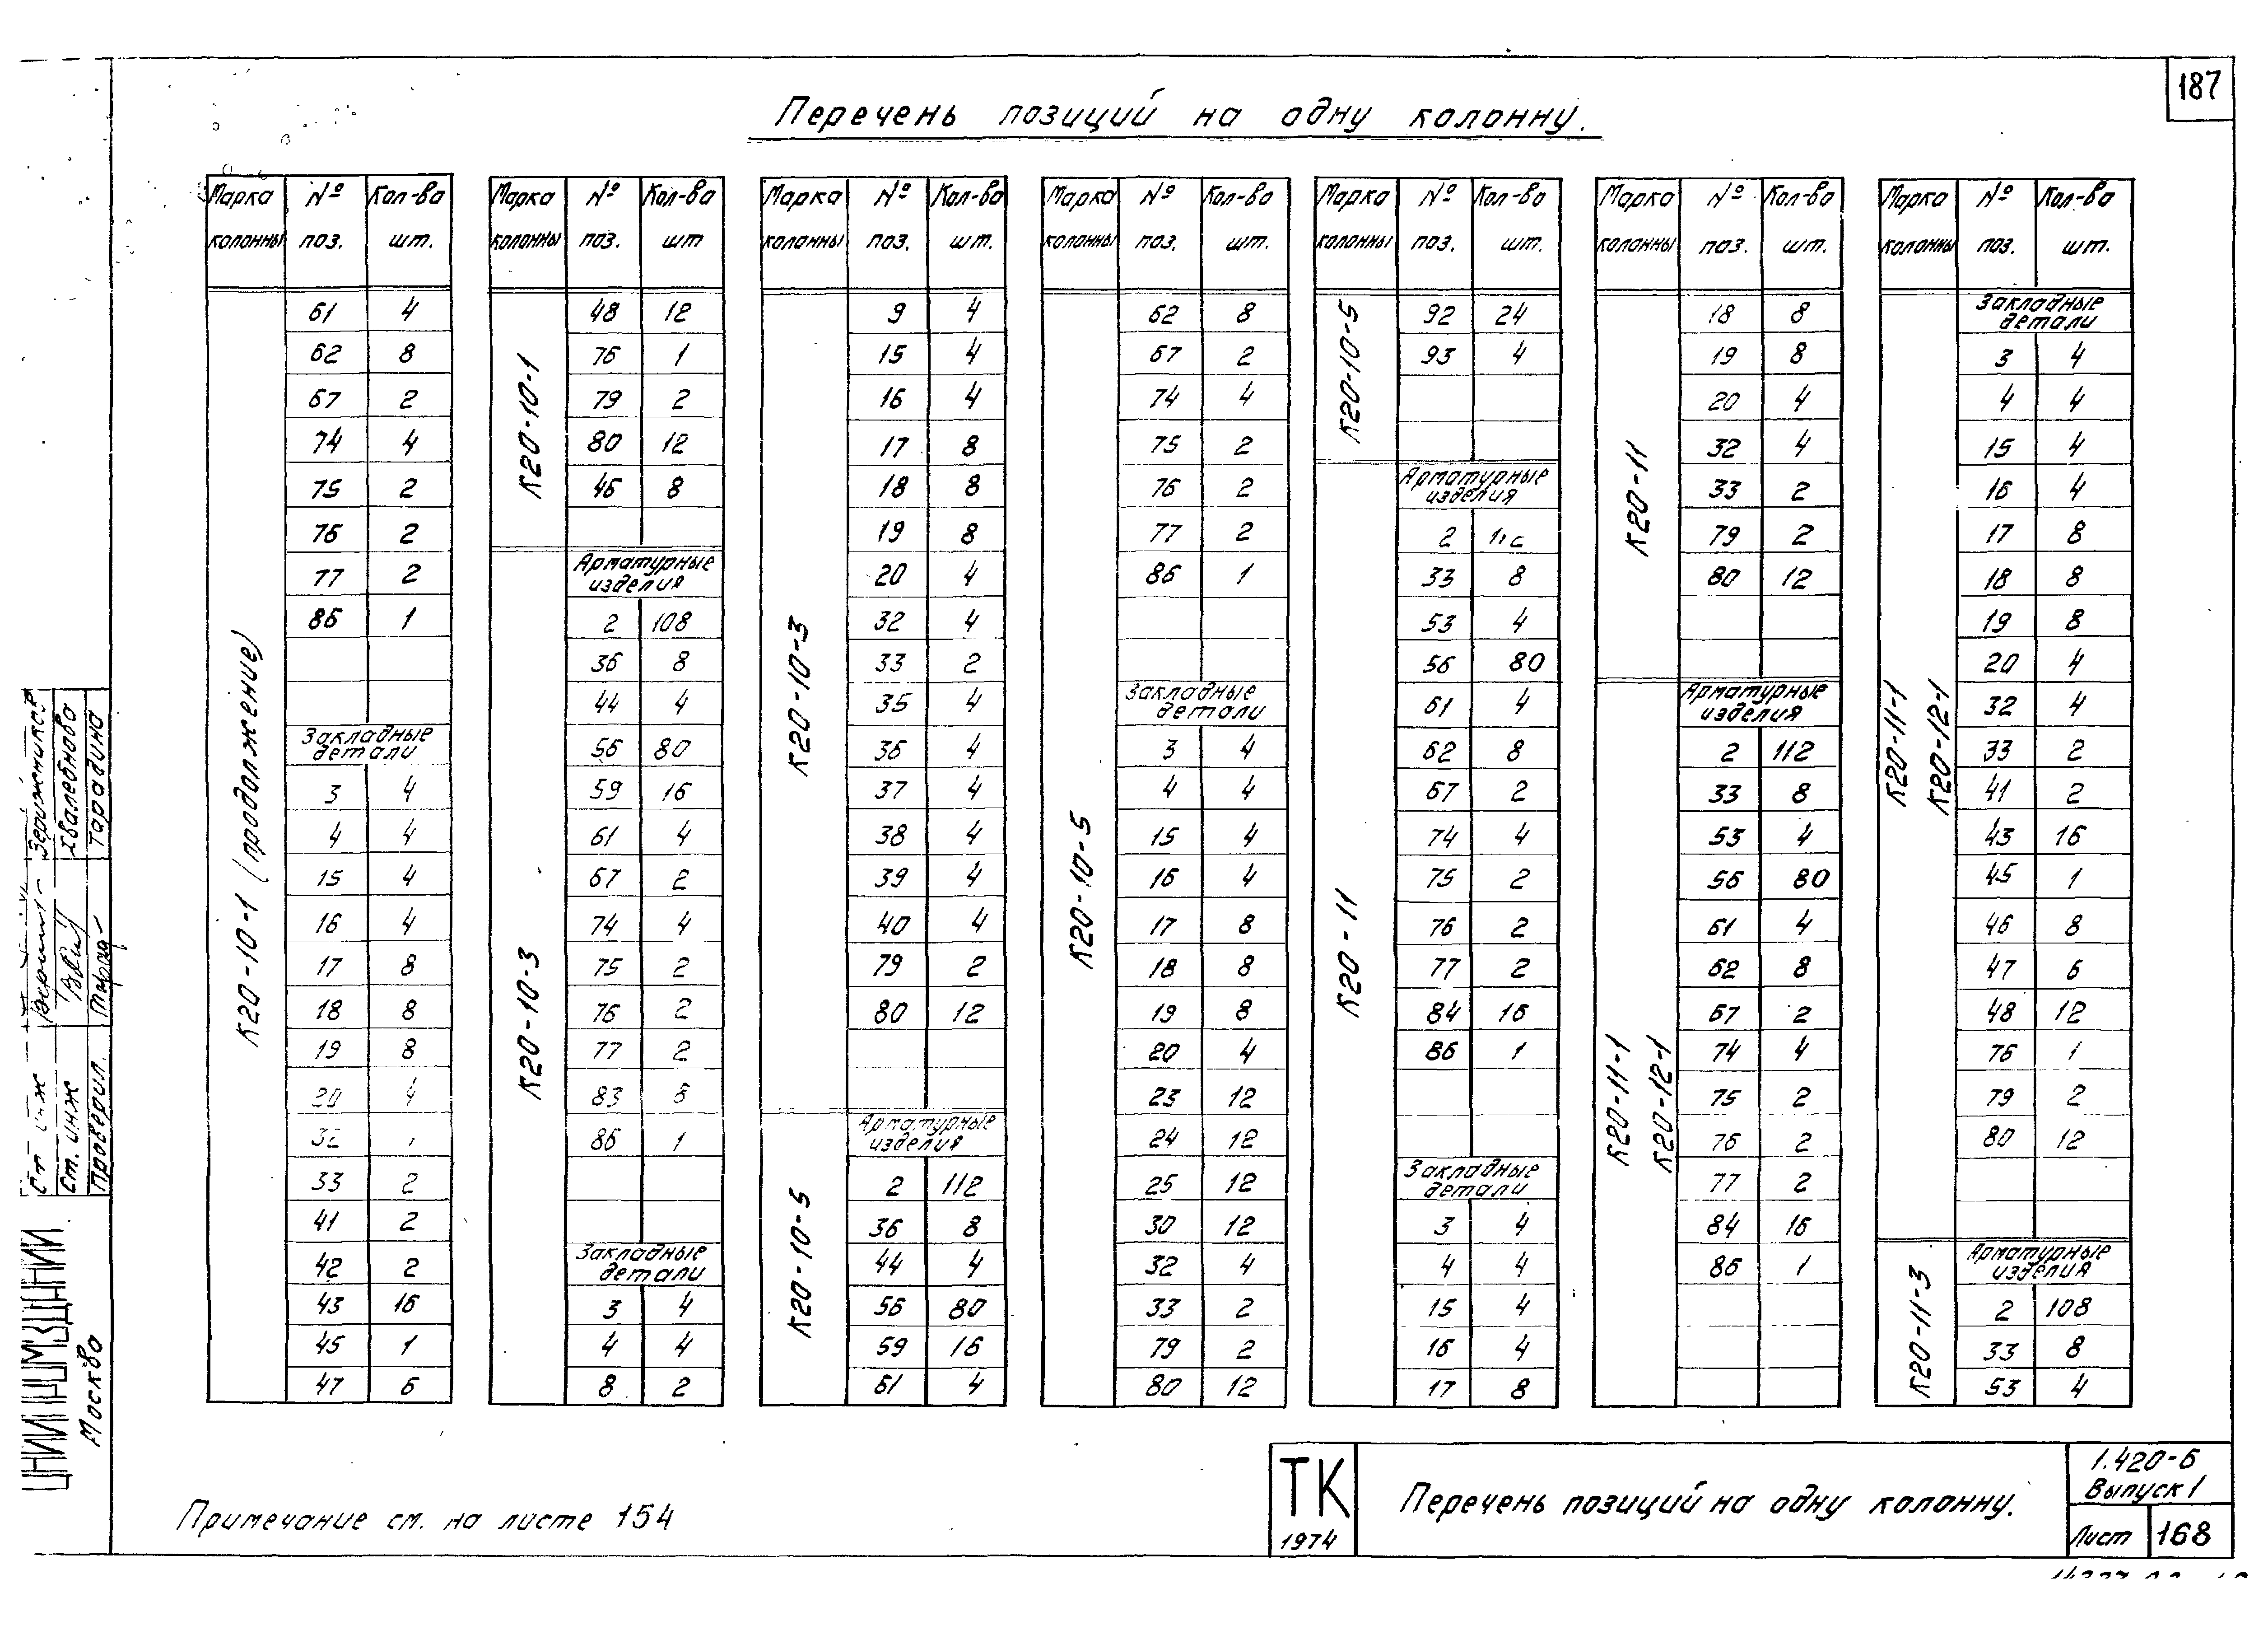 187
Перечень позиций на одну колонну.
Марка колонны № поз. Кол-во шт.
К20-10-1 (продолжение)
61 4
62 8
67 2
74 4
75 2
76 2
77 2
86 1
Закладные детали
3 4
4 4
15 4
16 4
17 8
18 8
19 8
20 4
32
33 2
41 2
42 2
43 16
45 1
47 6
Марка колонны № поз. Кол-во шт
К20-10-1
48 12
76 1
79 2
80 12
46 8
К20-10-3
Арматурные изделия
2 108
36 8
44 4
56 80
59 16
61 4
67 2
74 4
75 2
76 2
77 2
83
86 1
Закладные детали
3 4
4 4
8 2
Марка колонны № поз. Кол-во шт.
К20-10-3
9 4
15 4
16 4
17 8
18 8
19 8
20 4
32 4
33 2
35 4
36 4
37 4
38 4
39 4
40 4
79 2
80 12
К20-10-5
Арматурные изделия
2 112
36 8
44 4
56 80
59 16
61 4
Марка колонны № поз. Кол-во шт.
К20-10-5
62 8
67 2
74 4
75 2
76 2
77 2
86 1
Закладные детали
3 4
4 4
15 4
16 4
17 8
18 8
19 8
20 4
23 12
24 12
25 12
30 12
32 4
33 2
79 2
80 12
Марка колонны № поз. Кол-во шт.
К20-10-5
92 24
93 4
К20-11
Арматурные изделия
2
33 8
53 4
56 80
61 4
62 8
67 2
74 4
75 2
76 2
77 2
84 16
86 1
Закладные детали
3 4
4 4
15 4
16 4
17 8
Марка колонны № поз. Кол-во шт.
К20-11
18 8
19 8
20 4
32 4
33 2
79 2
80 12
К20-11-1
К20-12-1
Арматурные изделия
2 112
33 8
53 4
56 80
61 4
62 8
67 2
74 4
75 2
76 2
77 2
84 16
86 1
Марка колонны № поз. Кол-во шт.
К20-11-1
К20-12-1
Закладные детали
3 4
4 4
15 4
16 4
17 8
18 8
19 8
20 4
32 4
33 2
41 2
43 16
45 1
46 8
47 6
48 12
76 1
79 2
80 12
К20-11-3
Арматурные изделия
2 108
33 8
53 4
Примечание см. на листе 154
ТК
1974
Перечень позиций на одну колонну.
1.420-6
Выпуск 1
Лист 168
Ст. инж
Проверил.
Тарадина
Москва